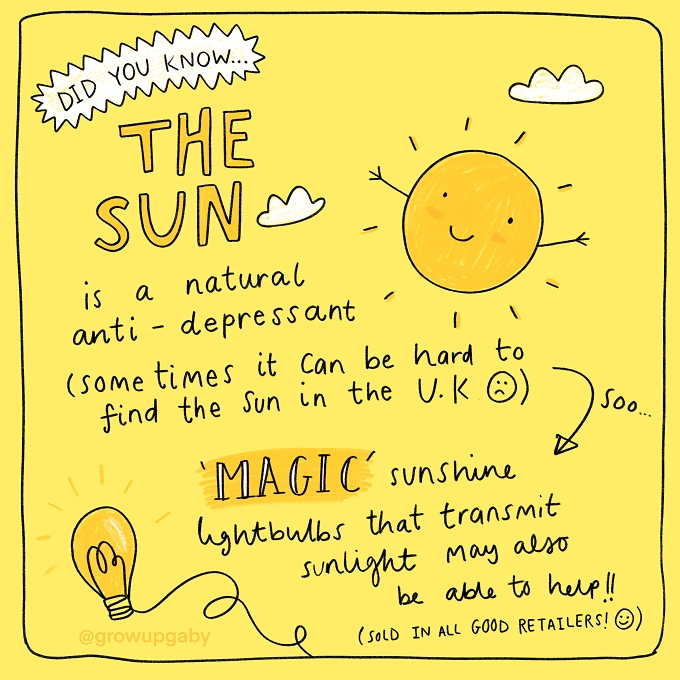 DID YOU KNOW...
THE
SUN
is a natural
anti-depressant
(sometimes it can be hard to
find the sun in the U.K ☹)
Soo...
'MAGIC' sunshine
lightbulbs that transmit
sunlight may also
be able to help!!
(SOLD IN ALL GOOD RETAILERS! ☺)
@growupgaby